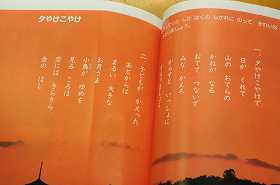 夕やけこやけ
一、夕やけこやけで
日が くれて
山の おてらの
かねが なる
おてて つないで
みな かえろ
からすと いっしょに
かえりましょう
二、子どもが かえった
あとからは
まるい 大きな
お月さま
小鳥が ゆめを
見る ころは
空には きらきら
金の ほし